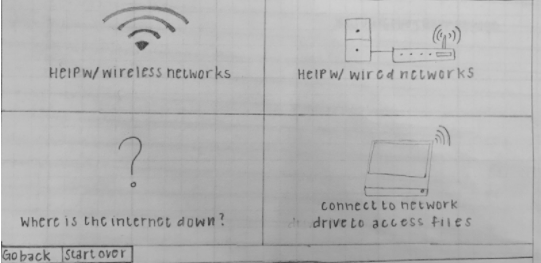 Help w/ wireless networks
Help w/ wired networks
Where is the internet down?
connect to network
drive to access files
Go back
Start over